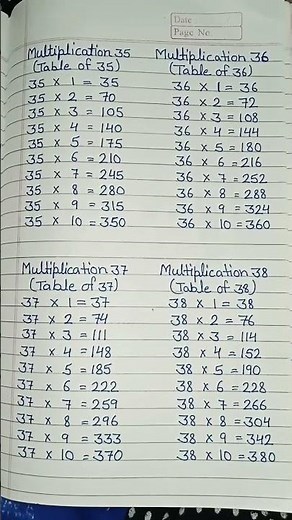 Date
Page No
Multiplication 35
(Table of 35)
35 × 1 = 35
35 × 2 = 70
35 × 3 = 105
35 × 4 = 140
35 × 5 = 175
35 × 6 = 210
35 × 7 = 245
35 × 8 = 280
35 × 9 = 315
35 × 10 = 350
Multiplication 36
(Table of 36)
36 × 1 = 36
36 × 2 = 72
36 × 3 = 108
36 × 4 = 144
36 × 5 = 180
36 × 6 = 216
36 × 7 = 252
36 × 8 = 288
36 × 9 = 324
36 × 10 = 360
Multiplication 37
(Table of 37)
37 × 1 = 37
37 × 2 = 74
37 × 3 = 111
37 × 4 = 148
37 × 5 = 185
37 × 6 = 222
37 × 7 = 259
37 × 8 = 296
37 × 9 = 333
37 × 10 = 370
Multiplication 38
(Table of 38)
38 × 1 = 38
38 × 2 = 76
38 × 3 = 114
38 × 4 = 152
38 × 5 = 190
38 × 6 = 228
38 × 7 = 266
38 × 8 = 304
38 × 9 = 342
38 × 10 = 380